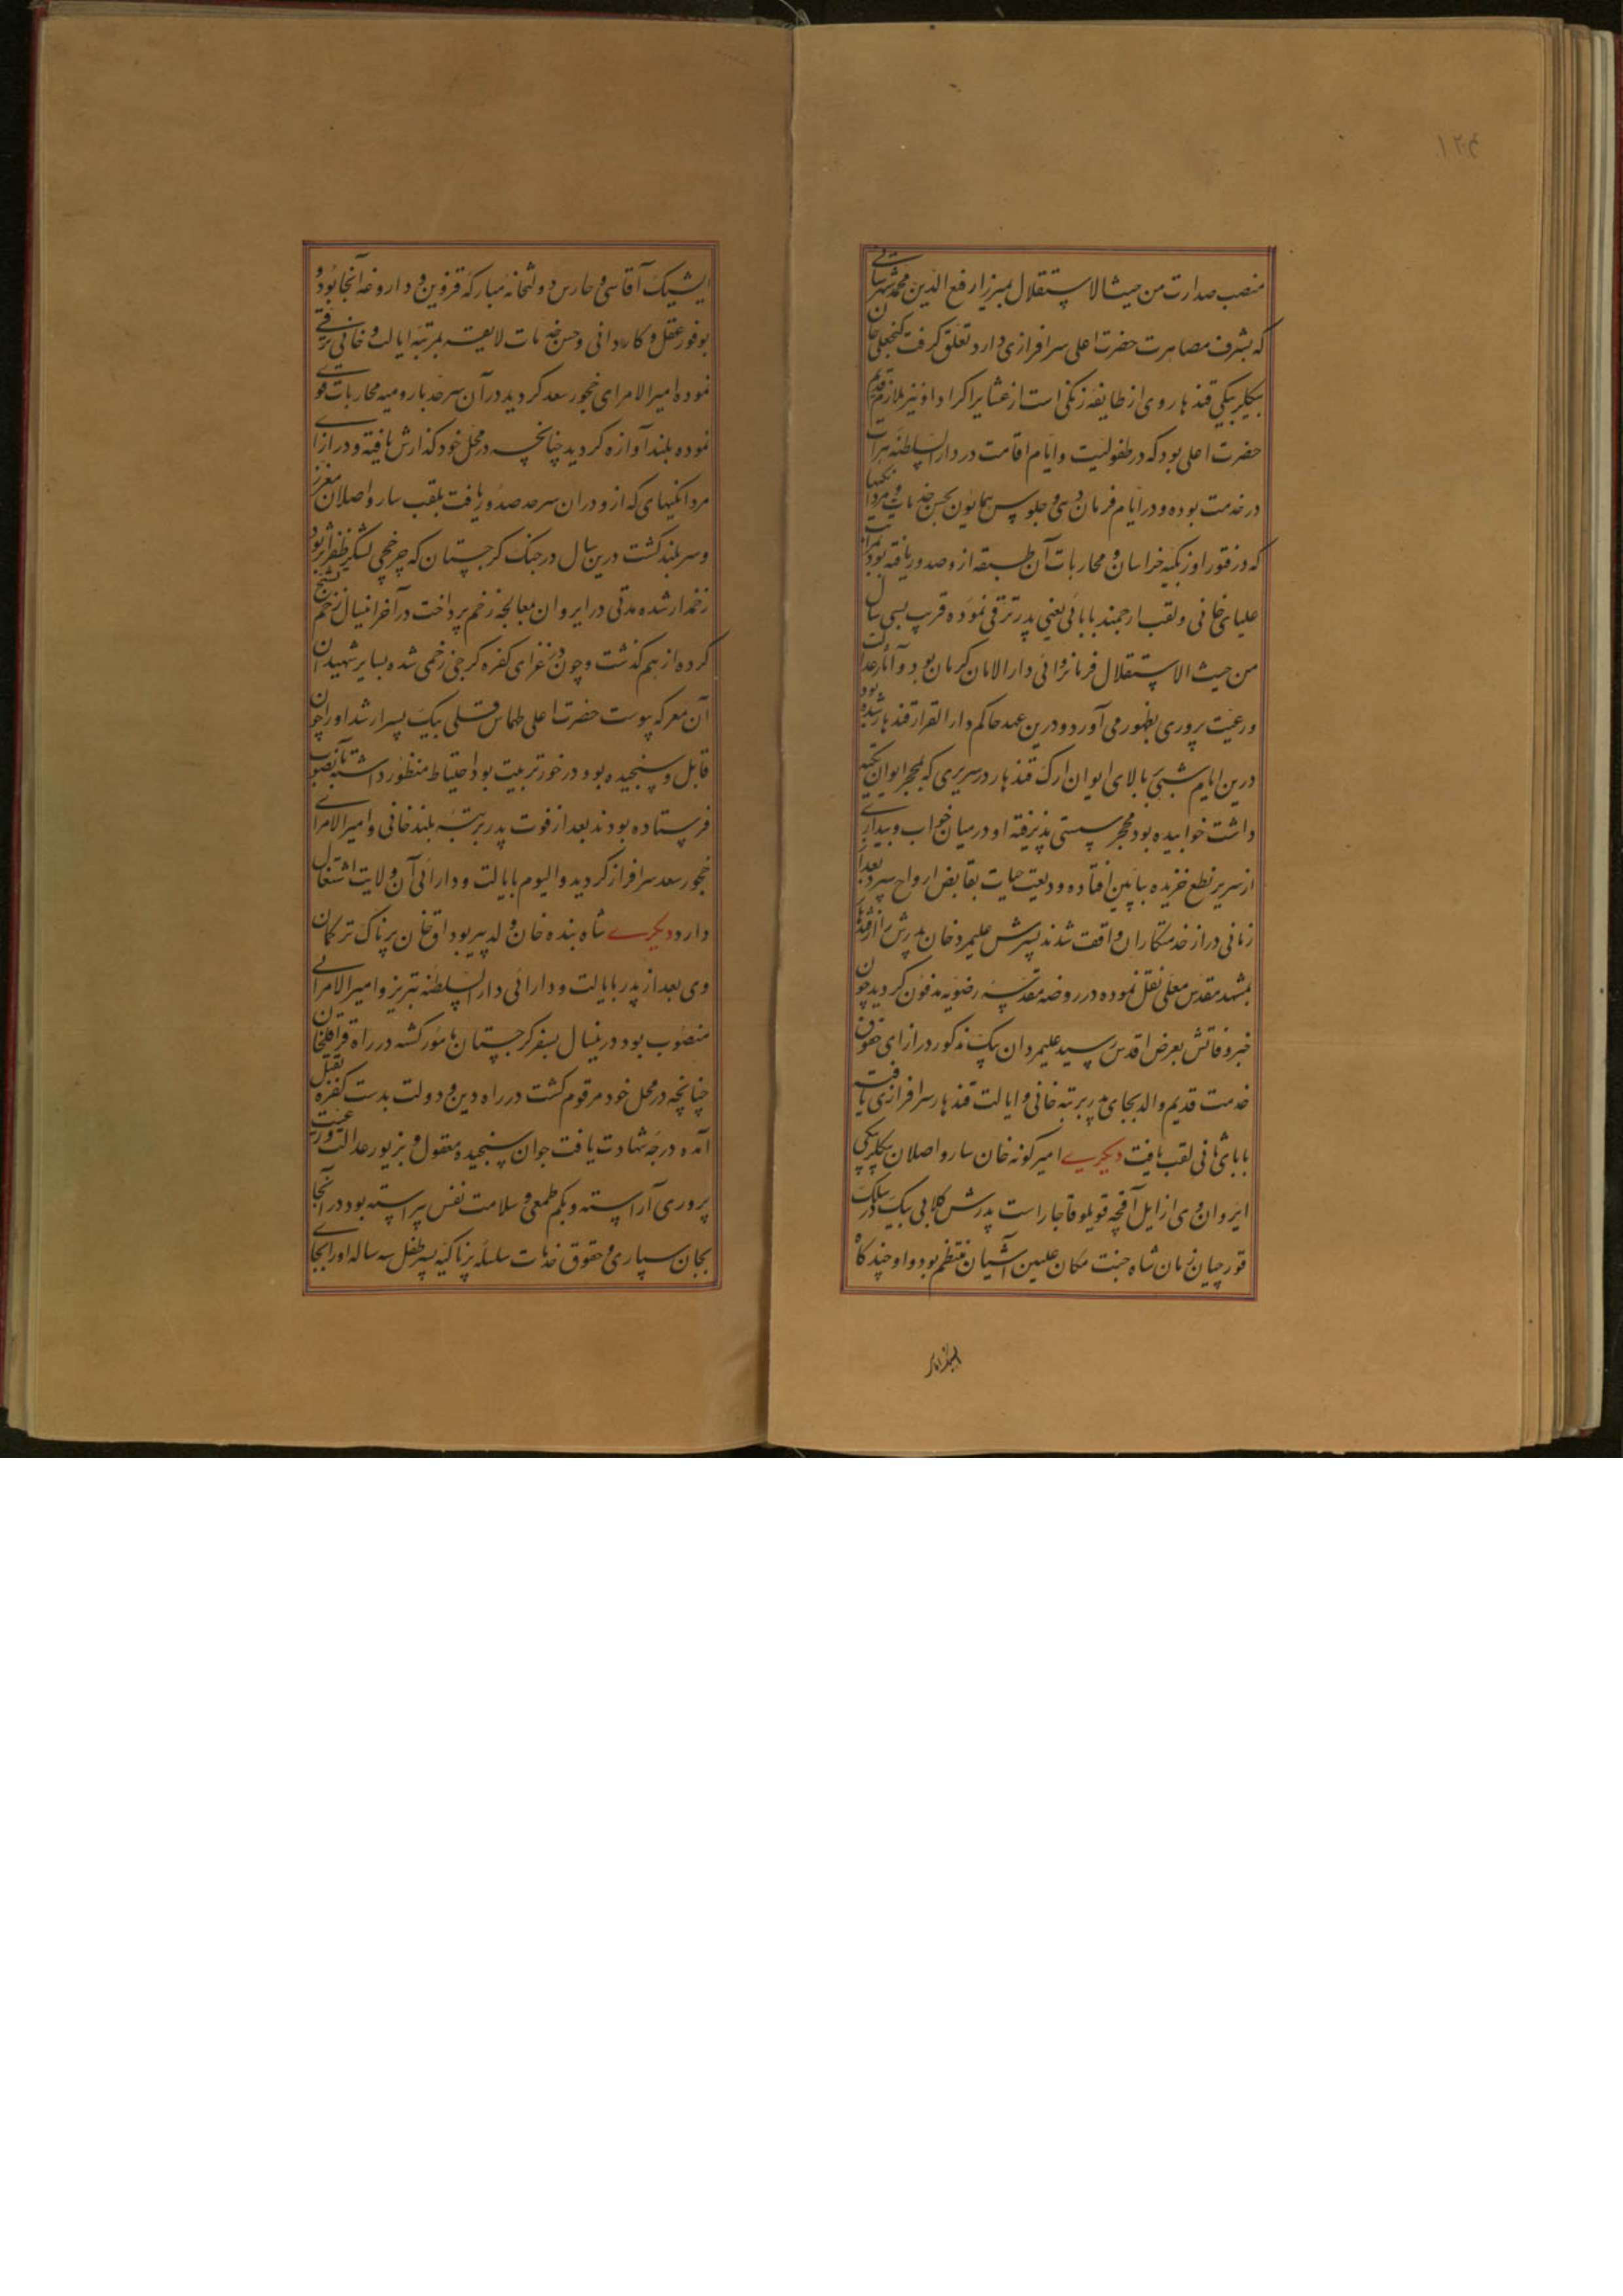 منصب صدارت من حیث الاستقلال میرزا رفیع الدین محمد شهرستانی
که بشرف مصاهرت حضرت اعلی سرافرازی دارد تعلق گرفت گنجعلی خان
بیکلربیکی قندهار وی از طایفه زنکنه است از عشایر اکراد او نیز ملازم قدیم
حضرت اعلی بود که در طفولیت و ایام اقامت در دار السلطنه هرات
در خدمت بوده و در ایام فرماندهی و جلوس همایون بحسن خدمات و مردانگیها
که در فتور اوزبکیه خراسان و محاربات آن طبقه از و صدور یافته بود بمراتب
علیای خانی و لقب ارجمند بابائی یعنی پدر ترقی نموده قریب بسی سال
من حیث الاستقلال فرمانروائی دار الامان کرمان بود و آثار عدالت
و رعیت پروری بظهور می آورد و درین عهد حاکم دار القرار قندهار شده بود
درین ایام شبی بالای ایوان ارک قندهار در سریری که بمحجر ایوان تکیه
داشت خوابیده بود محجر سستی پذیرفته او در میان خواب و بیداری
از سریر نطع خزیده بپایین افتاده ودیعت حیات بقابض ارواح سپرد بعد از
زمانی دراز خدمتکاران واقف شدند پسرش علیمردخان پدرش را از قندهار
بمشهد مقدس معلی نقل نموده در روضه مقدسه رضویه مدفون گردید چون
خبر وفاتش بعرض اقدس رسید علیمردان بیک مذکور در ازای حقوق
خدمت قدیم والد بجای پدر برتبه خانی و ایالت قندهار سرافرازی یافته
بابای ثانی لقب یافت دیگری امیرکونه خان سارو اصلان بیکلربیکی
ایروان وی از ایل آقچه قویلو قاجار است پدرش کلابی بیک در سلک
قورچیان زمان شاه جنت مکان علیین آشیان منتظم بود و او چندگاه
ایشیک آقاسی و حارس دولتخانه مبارکه قزوین و داروغه آنجا بود و
بوفور عقل و کاردانی و حسن خدمات لایقه بمرتبه ایالت و خانی ترقی
نموده امیر الامرای خجور سعد گردید در آن سرحد با رومیه محاربات قوی
نموده بلند آوازه گردید چنانچه در محل خود گذارش یافته و در ازای
مردانگیهای که ازو در ان سرحد صدور یافت بلقب سارو اصلان معزز
و سربلند گشت درین سال در جنگ گرجستان که چرخچی لشکر ظفر اثر بود
زخمدار شده مدتی در ایروان بمعالجه زخم پرداخت در آخر اینسال زخم تشنج
کرده از هم گذشت و چون در غزای کفره گرجی زخمی شده بسایر شهیدان
آن معرکه پیوست حضرت اعلی طهماسقلی بیک پسر ارشد او را چون
قابل و سنجیده بود و در خور تربیت بود احتیاط منظور داشته بآنصوب
فرستاده بودند بعد از فوت پدر برتبه بلند خانی و امیر الامرای
خجور سعد سرافراز گردید و الیوم بایالت و دارائی آن ولایت اشتغال
دارد دیگری شاه بنده خان ولد پیربوداق خان پرناک ترکمان
وی بعد از پدر بایالت و دارائی دار السلطنه تبریز و امیر الامرائی
منصوب بود درینسال بسفر گرجستان مامور گشته در راه قراقلخان
چنانچه در محل خود مرقوم گشت در راه دین و دولت بدست کفره بقتل
آمده درجه شهادت یافت جوان سنجیده معقول و بزیور عدالت و رعیت
پروری آراسته و بکم طمعی و سلامت نفس پیراسته بود در آنجا
بجان سپاری و حقوق خدمات سلسله پرناکیه پسر طفل سه ساله او را بجای